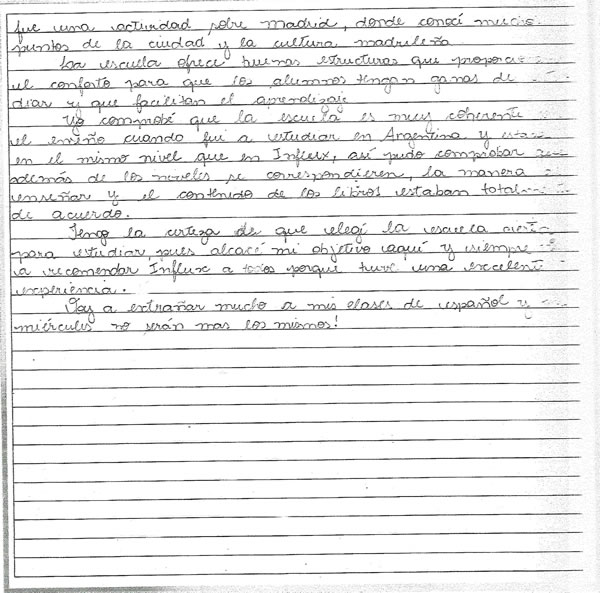 fue una actividad sobre Madrid, donde conocí mucho
puntos de la ciudad y la cultura madrileña
La escuela ofrece buenas estructuras que proporci
el conforto para que los alumnos tengan ganas de
diar y que facilitan el aprendizaje
Yo comprobé que la escuela es muy coherente
el enseño cuando fui a estudiar en Argentina y
en el mismo nivel que en Influx, así pudo comprobar
además de los niveles se correspondieren, la manera
enseñar y el contenido de los libros estaban total
de acuerdo.
Tengo la certeza de que elegi la escuela
para estudiar, pues alcacé mi objetivo aquí y siempre
a recomendar Influx a todos porque tuve una excelent
experiencia.
Voy a extrañar mucho a mis clases de español y
miércules no serán mas los mismos!